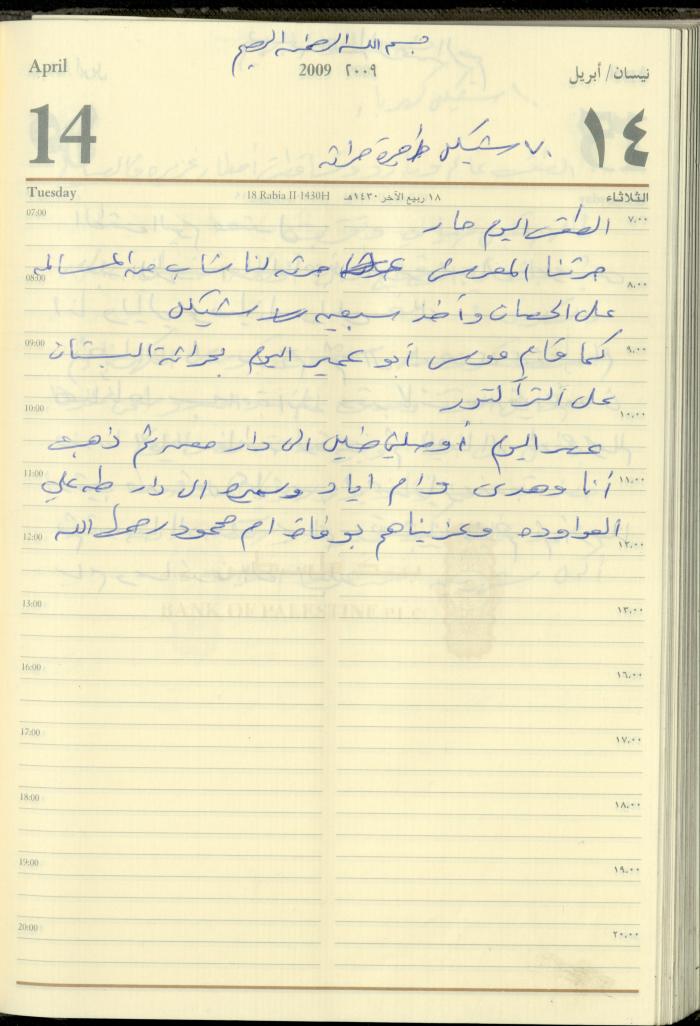 بسم الله الرحمن الرحيم
April
2009 ٢٠٠٩
نيسان/ أبريل
14
١٤
٧٠ شيكل اجرة حراثه
Tuesday
18 Rabia II 1430H ١٨ ربيع الآخر ١٤٣٠هـ
الثلاثاء
07:00 ٧،٠٠
الطقس اليوم حار
حرثنا المعرش حرثه لنا شاب من المسالمه
08:00 ٨،٠٠
على الحصان وأخذ سبعين شيكل
09:00 ٩،٠٠
كما قام موسى أبو عمير اليوم بحراثة البستان
على التراكتور
10:00 ١٠،٠٠
عصر اليوم أوصلني خليل الى دار معن ثم ذهبت
11:00 ١١،٠٠
أنا وهدى وام اياد وسميره الى دار طه علي
العواوده وعزيناهم بوفاة ام محمود رحمها الله
12:00 ١٢،٠٠
BANK OF PALESTINE PLC
13:00 ١٣،٠٠
16:00 ١٦،٠٠
17:00 ١٧،٠٠
18:00 ١٨،٠٠
19:00 ١٩،٠٠
20:00 ٢٠،٠٠